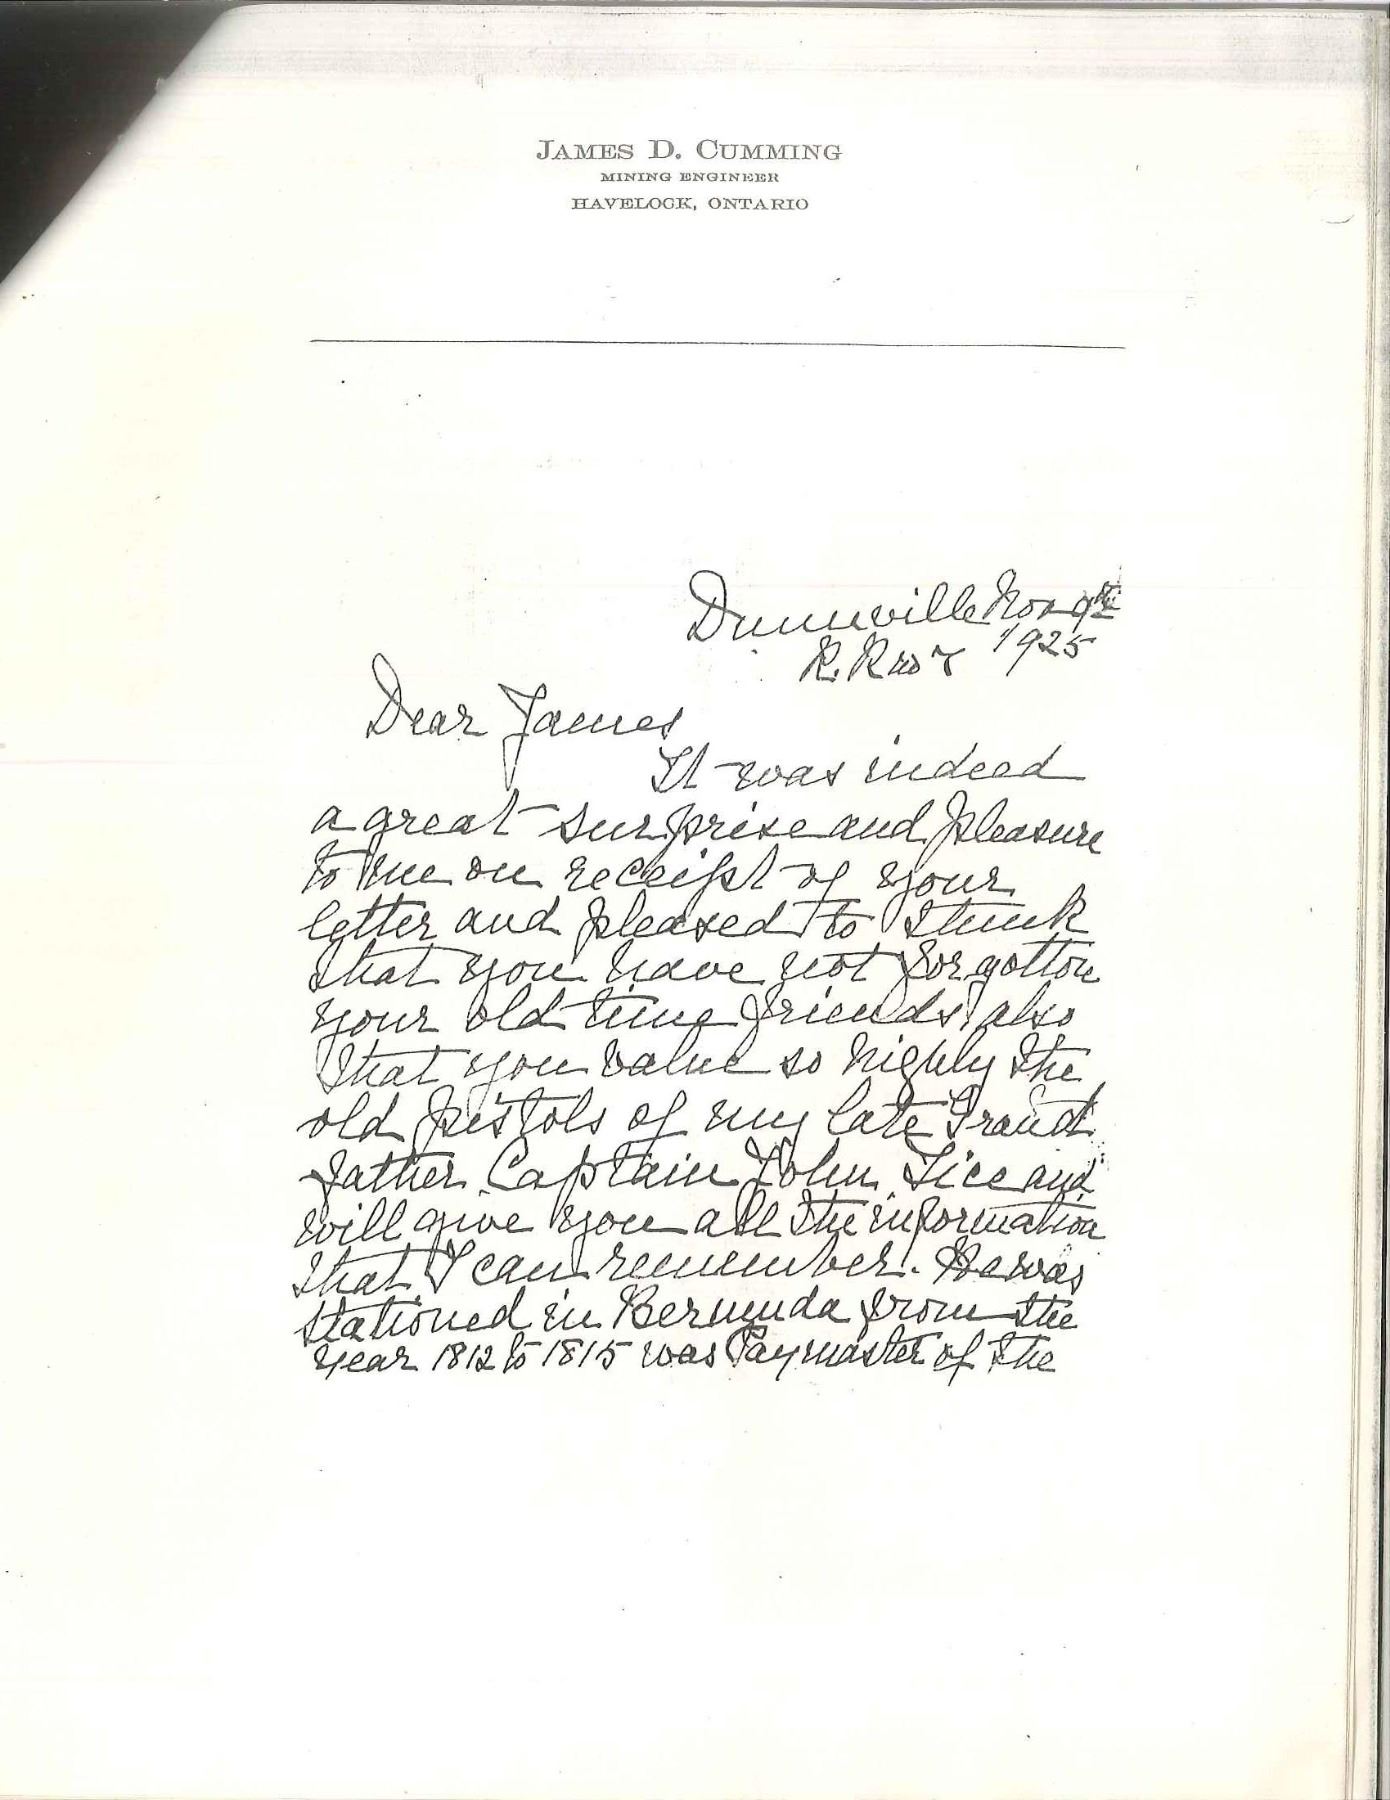 JAMES D. CUMMING
MINING ENGINEER
HAVELOCK, ONTARIO
Dunnville Nov 9th
R. R no 7 1925
Dear James
It was indeed
a great surprise and pleasure
to me on receipt of your
letter and pleased to think
that you have not forgotton
your old time friends, also
that you value so highly the
old pistols of my late Grand
father Captain John Tice and
will give you all the information
that I can remember. He was
stationed in Bermuda from the
year 1812 to 1815 was Paymaster of the